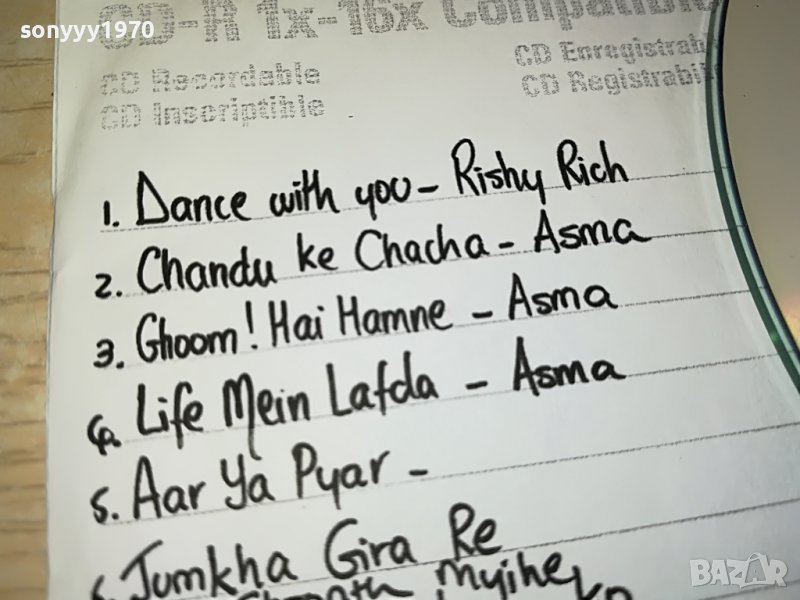 sonyyy1970
CD-R 1x-16x Compatible
CD Recordable
CD Inscriptible
CD Enregistrab
CD Registrabil
1. Dance with you - Rishy Rich
2. Chandu ke Chacha - Asma
3. Ghoom! Hai Hamne - Asma
4. Life Mein Lafda - Asma
5. Aar Ya Pyar -
6. Jumkha Gira Re
Mujhe
BAZAR